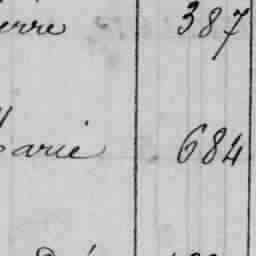 erre 387
Marie 684